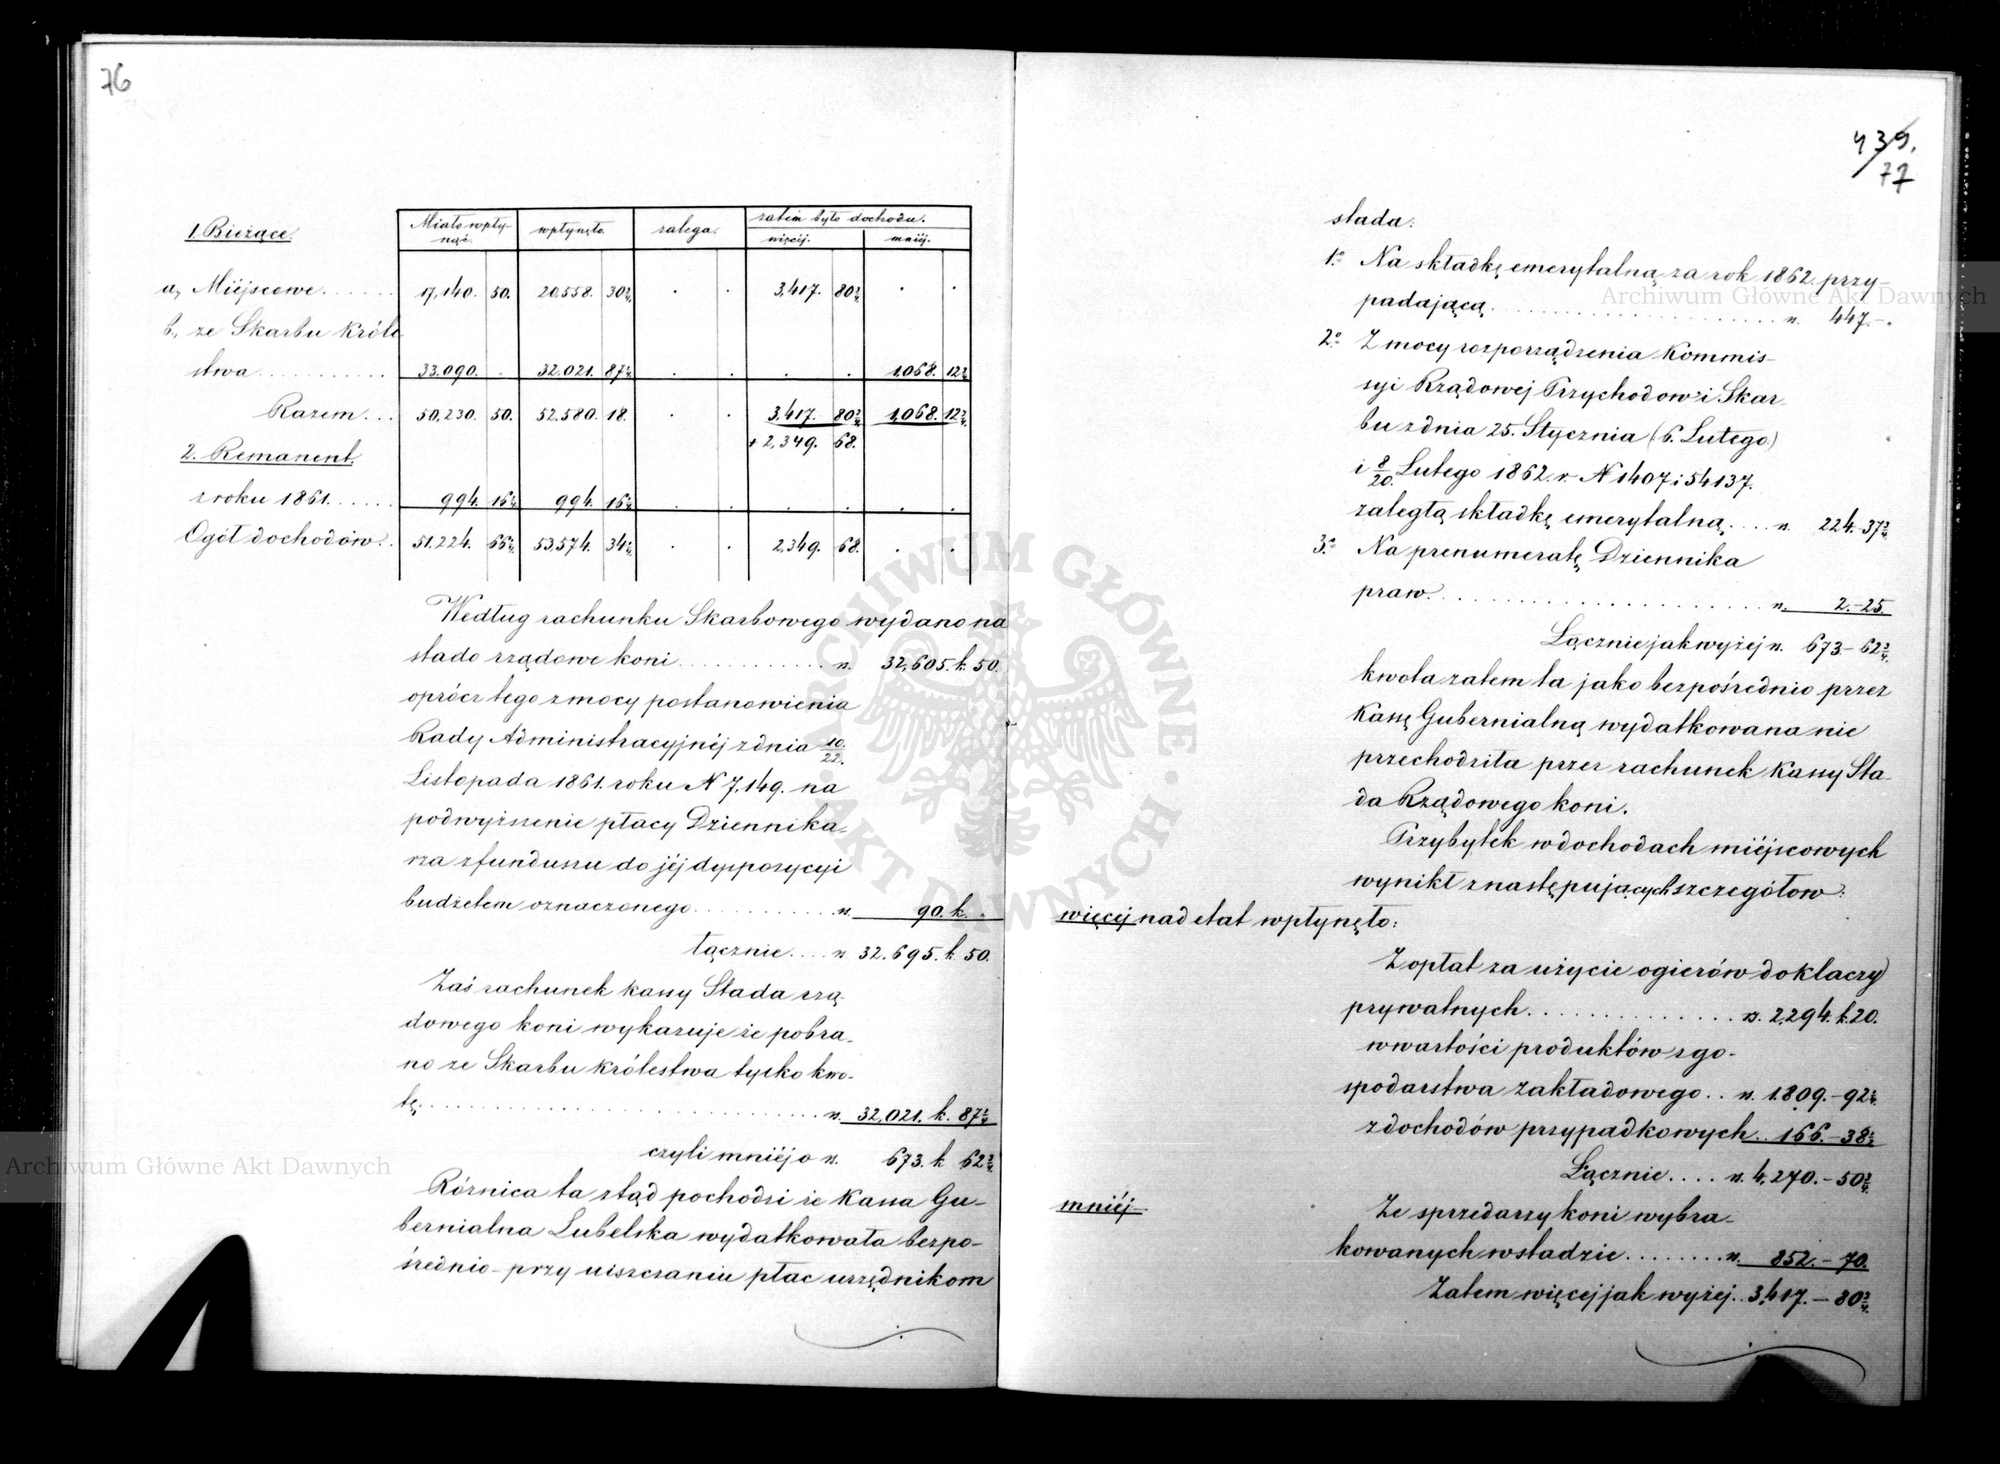 76
1. Bieżące.
Miało wpły-
nąć.
wpłynęło.
zalega.
zatem było dochodu.
więcéj.
mniéj.
a, Miéjscowe . . . . . . 17,140. 50. 20,558. 30¾ . . 3,417. 80¾ . .
b, ze Skarbu Króle-
stwa . . . . . . . . . 33,090. - 32.021. 87¼ . . . . 1,068. 12¾
Razem . . . 50,230. 50. 52.580. 18. . . 3,417. 80¾ 1,068. 12¾
+ 2,349. 68.
2. Remanent
z roku 1861. . . . . . 994. 16¼ 994. 16¼ . . . . . .
Ogół dochodów. . 51,224. 66¼ 53,574. 34¼ . . 2,349. 68. . .
Według rachunku Skarbowego wydano na
stado rządowe koni . . . . . . . . . . . rs. 32,605. k. 50.
oprócz tego z mocy postanowienia
Rady Administracyjnéj z dnia 10/22.
Listopada 1861. roku N 7,149. na
podwyższenie płacy Dziennika-
rza z funduszu do jéj dyspozycyi
budżetem oznaczonego . . . . . . . . . . rs. 90. k. .
łącznie . . . . rs. 32.695. k. 50.
Zaś rachunek kassy Stada rzą-
dowego koni wykazuje że pobra-
no ze Skarbu królestwa tylko kwo-
tę . . . . . . . . . . . . . . . . . . . . . . . rs. 32,021. k. 87¼
czyli mniéj o rs. 673. k 62¾
Różnica ta ztąd pochodzi że Kassa Gu-
bernialna Lubelska wydatkowała bezpo-
średnio - przy uiszczaniu płac urzędnikom
439.
77
stada:
1.° Na składkę emerytalną za rok 1862. przy-
padającą . . . . . . . . . . . . . . . . . . . . rs. 447. - .
2.° Z mocy rozporządzenia Kommis-
syi Rządowej Przychodów i Skar-
bu z dnia 25. Stycznia (6. Lutego)
i 8/20. Lutego 1862. r. N 1407 i 54137.
zaległą składkę emerytalną . . . . rs. 224. 37¾
3.° Na prenumeratę Dziennika
praw. . . . . . . . . . . . . . . . . . . . . . rs. 2. - 25.
Łącznie jak wyżej rs. 673 - 62¾
kwota zatem ta jako bezpośrednio przez
Kassę Gubernialną wydatkowana nie
przechodziła przez rachunek Kassy Sta-
da Rządowego koni.
Przybytek w dochodach miéjscowych
wynikł z następujących szczegółow:
więcej nad etat wpłynęło:
Z opłat za użycie ogierów do klaczy
prywatnych . . . . . . . . . . . . . . rs. 2,294. k. 20.
w wartości produktów z go-
spodarstwa zakładowego . . rs. 1.809. - 92¼
z dochodów przypadkowych . . 166. - 38½
Łącznie . . . . rs. 4,270. - 50¾
mniéj
Ze sprzedaży koni wybra-
kowanych w stadzie . . . . . . . . rs. 852. - 70.
Zatem więcej jak wyżej . . 3,417. - 80¾
Archiwum Główne Akt Dawnych
Archiwum Główne Akt Dawnych
ARCHIWUM GŁÓWNE · AKT DAWNYCH ·